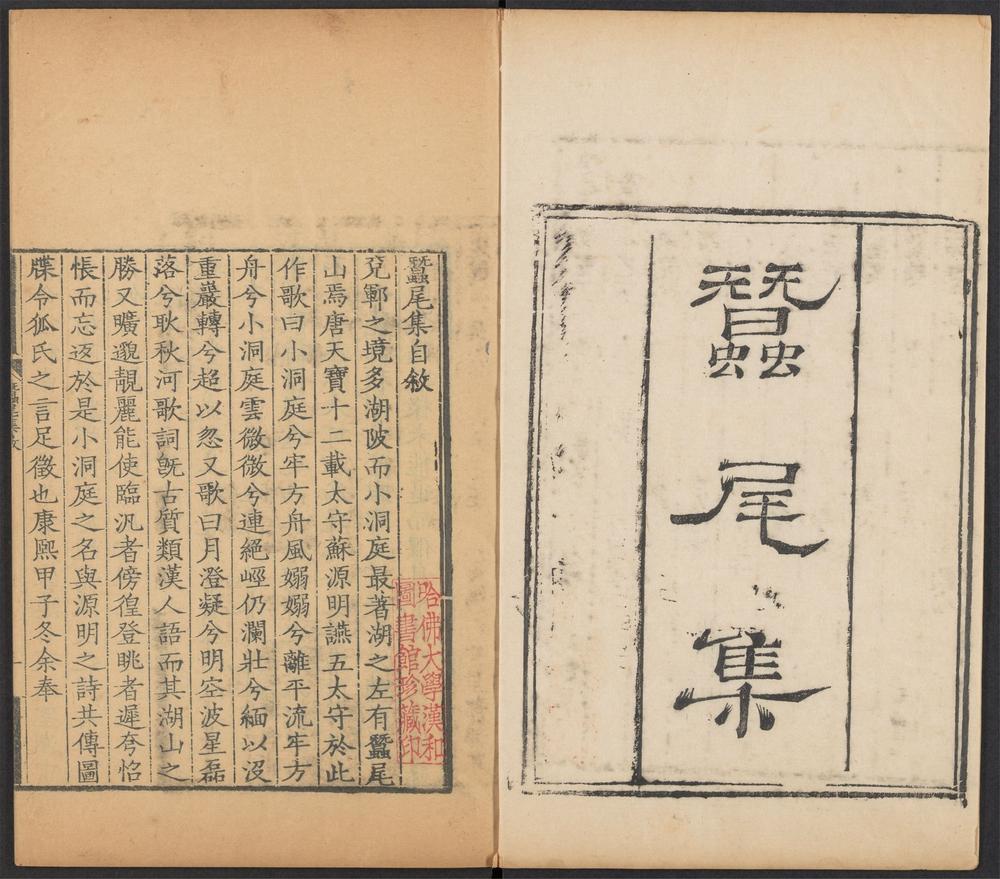 蠶尾集
蠶尾集自敘
兗鄆之境多湖陂而小洞庭最著湖之左有蠶尾
山焉唐天寶十二載太守蘇源明讌五太守於此
作歌曰小洞庭兮牢方舟風嫋嫋兮離平流牢方
舟兮小洞庭雲微微兮連絕崿仍瀾壯兮緬以沒
重巖轉兮超以忽又歌曰月澄凝兮明空波星磊
落兮耿秋河歌詞旣古質類漢人語而其湖山之
勝又曠邈靚麗能使臨汎者傍徨登眺者遲夸怊
悵而忘返於是小洞庭之名與源明之詩共傳圖
牒令狐氏之言足徵也康熙甲子冬余奉
哈佛大學漢和
圖書館珍藏印